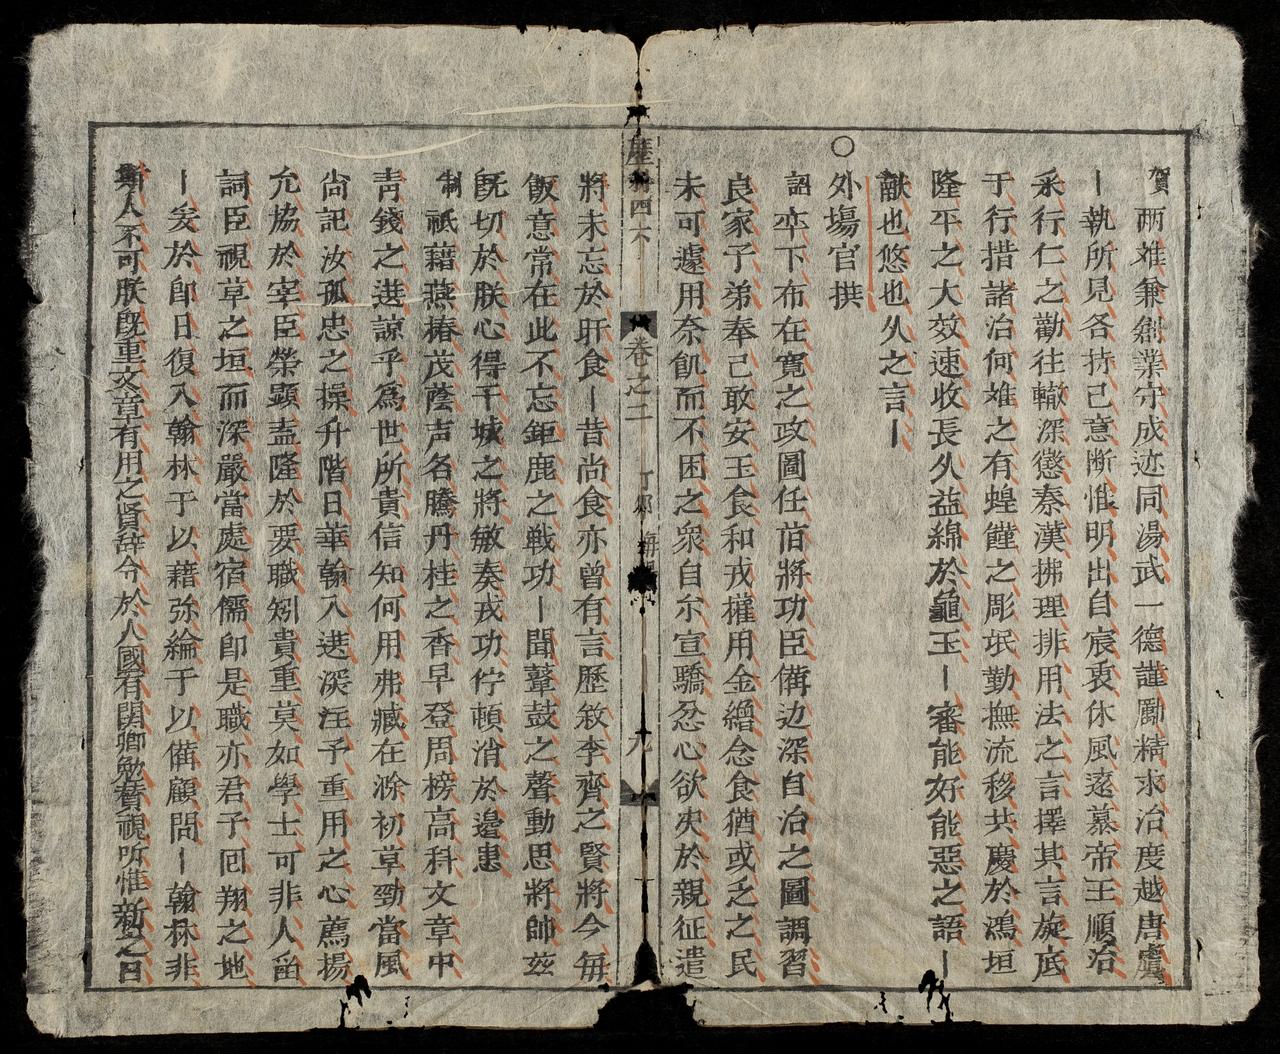 賀兩难兼創業守成迹同湯武一德誰勵精求治度越唐虞
丨執所見各持己意断惟明出自宸衷休風逺慕帝王順治
采行仁之勸往轍深懲秦漢拂理排用法之言擇其言旋底
于行措諸治何难之有蝗饉之彫氓勤撫流移共慶於鴻垣
隆平之大效速收長久益綿於龜玉丨審能好能惡之語丨
猷也悠也久之言丨
〇外場官撰
詔卒下布在寛之政圖任前將功臣俻边深自治之圖調習
良家子弟奉己敢安玉食和戎擢用金繒念食猶或乏之民
未可遽用奈飢而不困之衆自尓宣驕忿心欲决於親征遣
歷科四六 卷之二 丁卯 九
將未忘於旰食丨昔尚食亦曾有言歷敘李齊之賢將今每
飯意常在此不忘鉅鹿之戦功丨聞鼙鼓之聲動思將帥兹
既切於朕心得干城之將敏奏戎功佇頓消於邊患
制祇藉燕椿茂蔭声名騰丹桂之香早登周榜高科文章中
靑錢之選諒乎爲世所貴信知何用弗臧在滁初草勁當風
尚記汝孤忠之操升階日華翰入选深汪予重用之心薦揚
允協於宰臣榮顯盍隆於要職矧貴重莫如學士可非人畄
詞臣視草之垣而深嚴當處宿儒卽是職亦君子囘翔之地
丨矣於卽日復入翰林于以藉弥綸于以俻顧問丨翰林非
斯人不可朕旣重文章有用之贤辞令於人國有関卿勉賛視所惟新之日